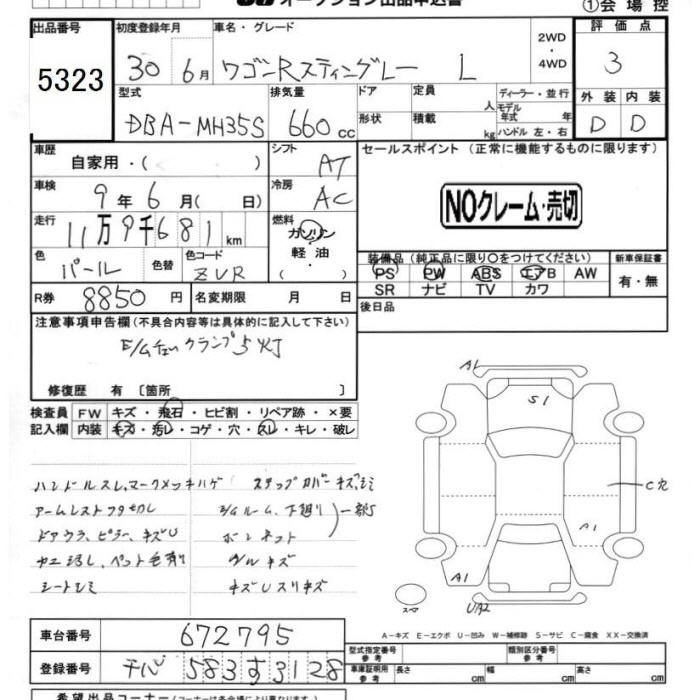 オークション出品申込書
①会場控
出品番号 初度登録年月 車名・グレード 2WD・4WD 評価点
5323 30年 6月 ワゴンRスティングレー L 3
型式 排気量 ドア 定員 人 ディーラー・並行 外装 内装
DBA-MH35S 660cc 形状 積載 kg モデル年式 年 ハンドル 左・右 D D
車歴 自家用・( ) シフト AT セールスポイント (正常に機能するものに限ります)
車検 9年 6月( 日) 冷房 AC NOクレーム・売切
走行 11万9千681km 燃料 ガソリン 軽油 ・( )
色 パール 色替 色コード ZVR
装備品 (純正品に限り○をつけてください) 新車保証書
PS PW ABS エアB AW 有・無
SR ナビ TV カワ
R券 8850円 名変期限 月 日 後日品
注意事項申告欄(不具合内容等は具体的に記入して下さい)
E/Gチェックランプ
修復歴 有 〔箇所 〕
検査員 FW キズ・飛石・ヒビ割・リペア跡・×要
記入欄 内装 キズ・汚レ・コゲ・穴・スレ・キレ・破レ
ハンドルスレ、マークメッキハゲ ステップカバーキズ
アームレストフタ 下廻り
ドアウラ、ピラー、キズU ボンネット
ペット毛有り キズ
シートシミ キズUスリキズ
A1
S1
C穴
A1
A1
スペア
UA2
A-キズ E-エクボ U-凹み W-補修跡 S-サビ C-腐食 XX-交換済
車台番号 672795
登録番号 千葉 583 す 3128
型式指定番号 参考 類別区分番号 参考
車庫証明用 参考 長さ cm 幅 cm 高さ cm
希望出品コーナー(コーナーは各会場により異なります)